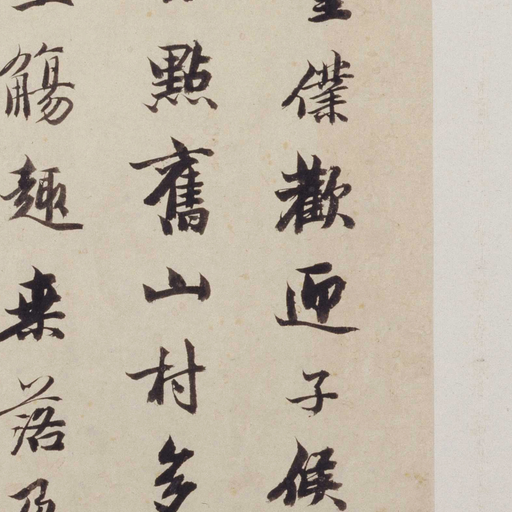 僕歡迎子候
點舊山村多
觴趣来落